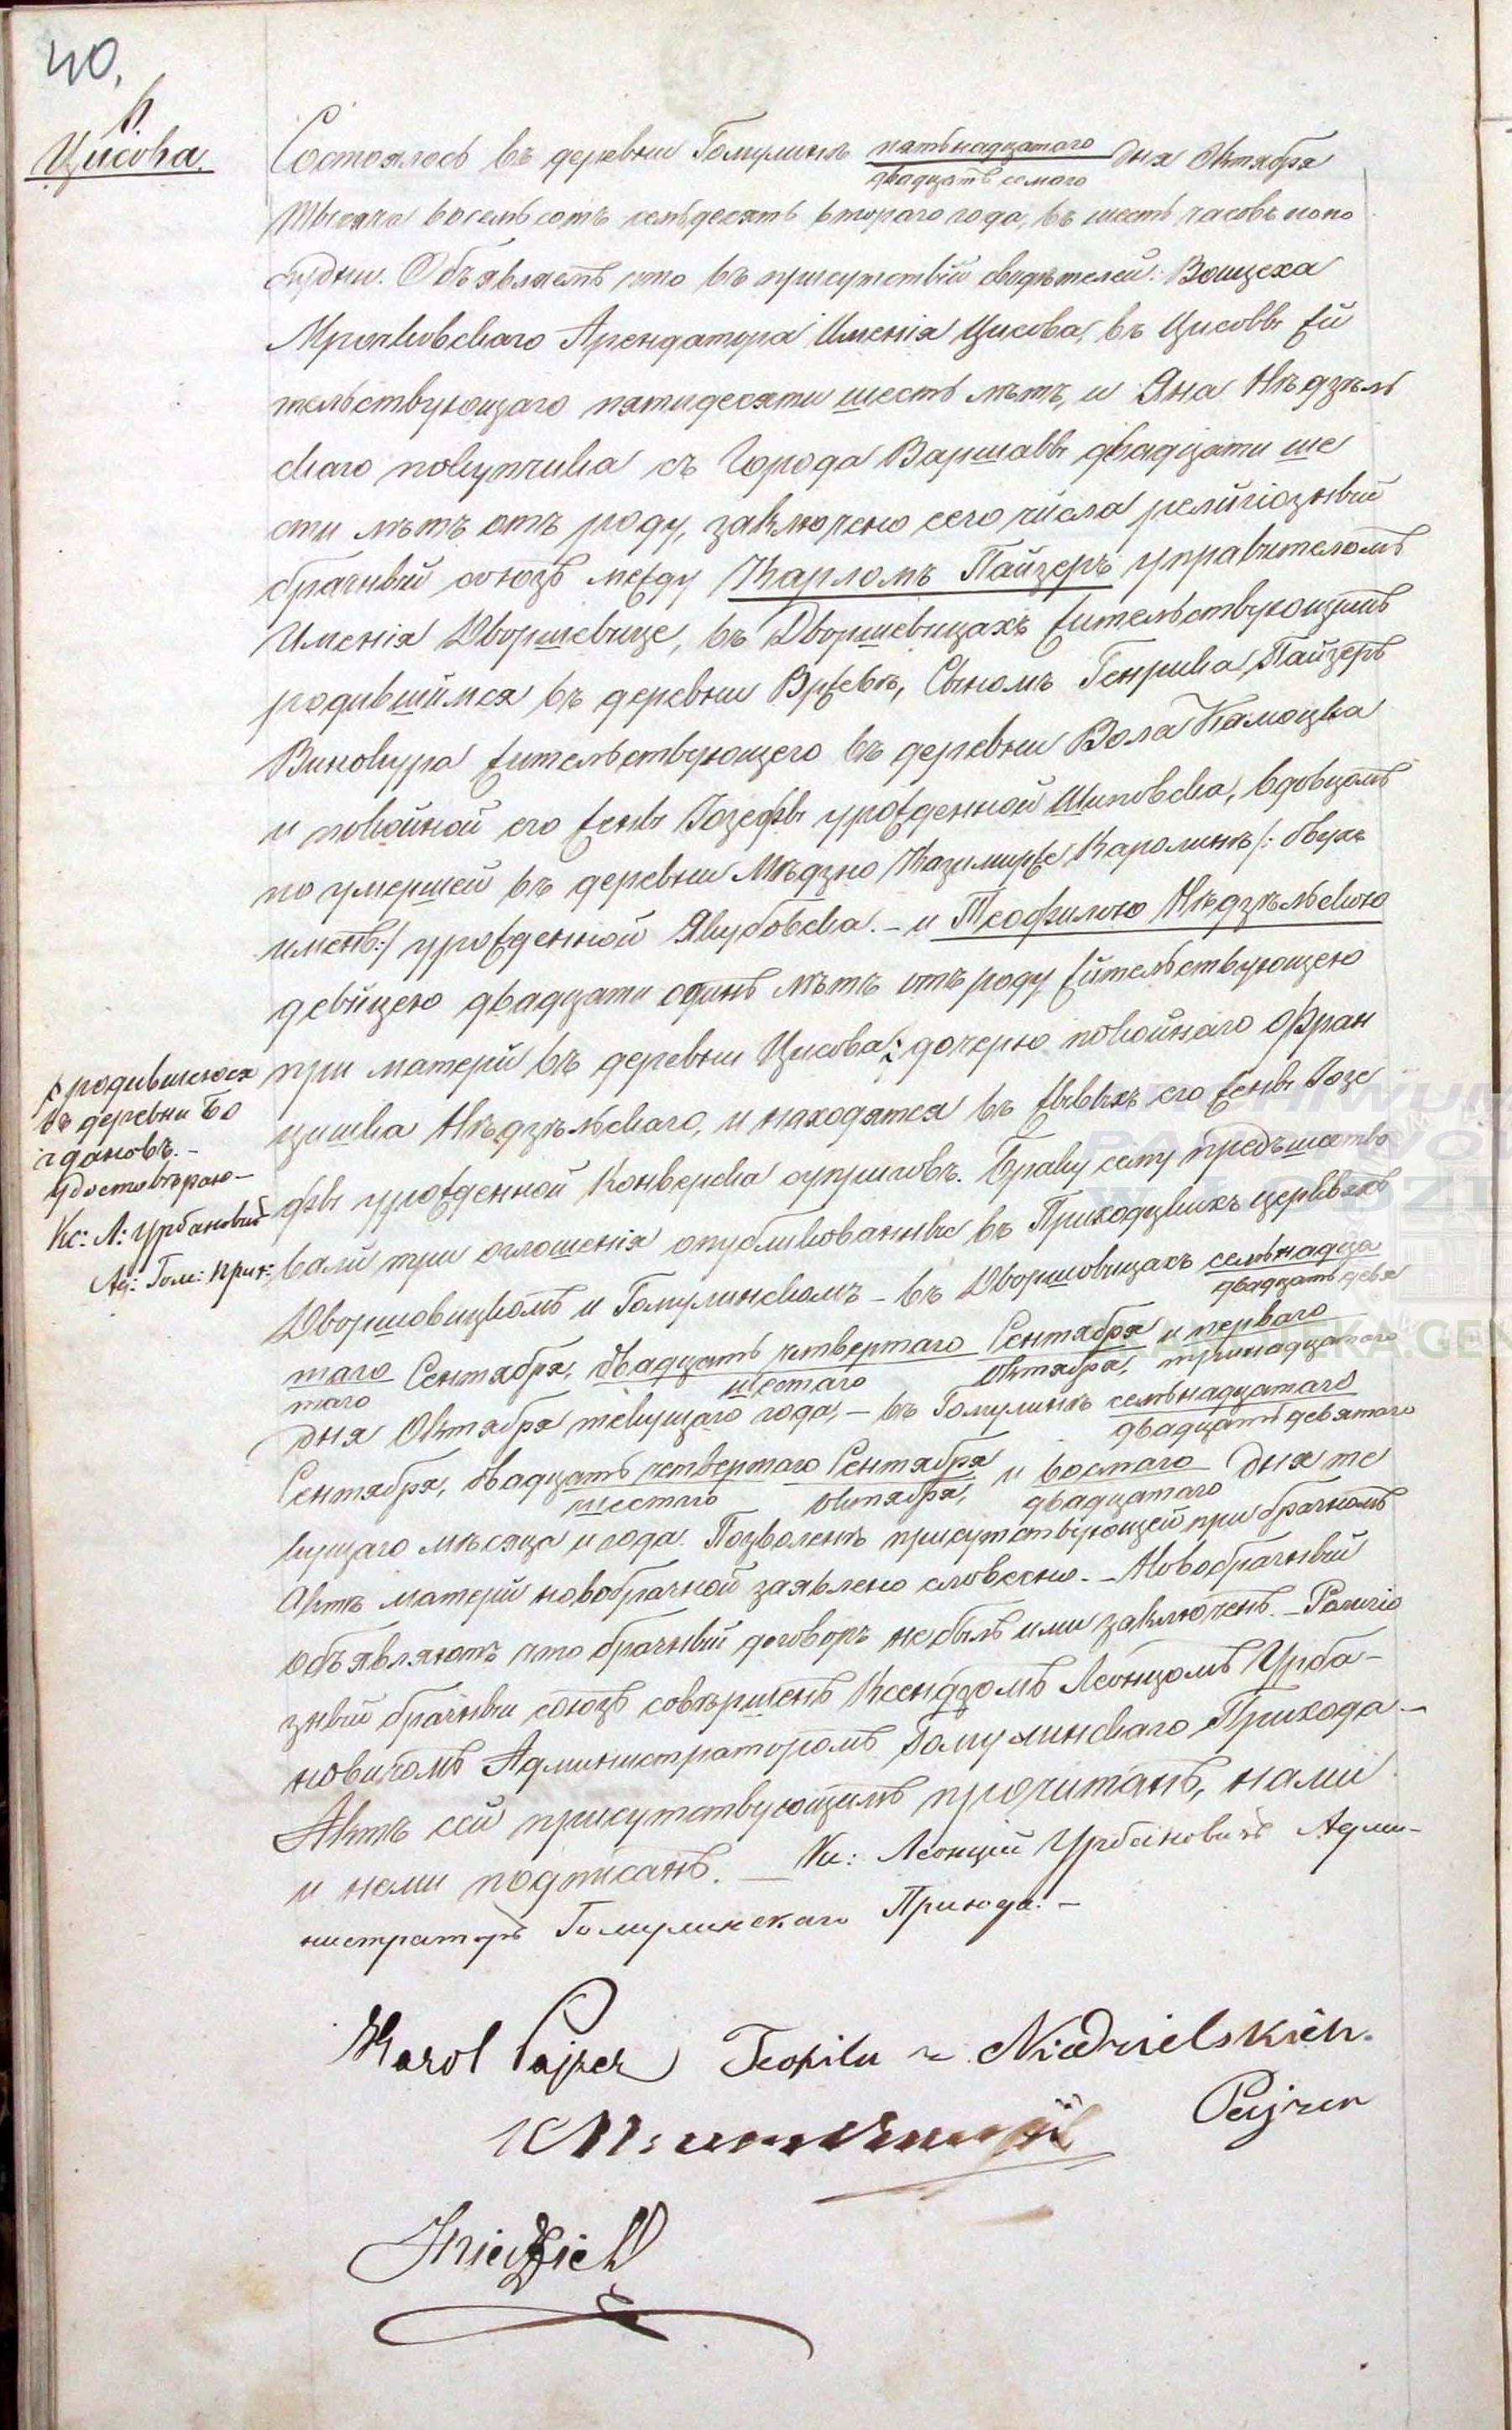 40.
Цисова.
Состоялось въ деревни Гомулинъ пятьнадцатого дня Октября
двадцать семаго
тысяча восемьсотъ семьдесятъ втораго года, въ шесть часовъ попо
лудни. Объявляемъ что въ присутствіи свидѣтелей: Воицеха
Мрочковскаго Арендатора Именія Цисова, въ Цисовѣ жи
тельствующаго пятидесяти шесть лѣтъ, и Яна Нѣдзѣль
скаго покупчика съ Города Варшавы двадцати ше
сти лѣтъ отъ роду, заключено сего числа религіозный
брачный союзъ между Карломъ Пайзеръ управителомъ
Именія Дворшевице, въ Дворшевицахъ жительствующимъ
родившимся въ деревни Вржевѣ, Сыномъ Генрика Пайзеръ
Винокура жительствующего въ деревни Вола Камоцка
и покойной его жены Іозефы урожденной Шиповска, вдовцомъ
по умершей въ деревни Мѣдзно Казимирже Каролинѣ /: двухъ
именъ:/ урожденной Якубовска. – и Теофилою Нѣдзѣльскою
девицею двадцати одинъ лѣтъ отъ роду жительствующею
при матери въ деревни Цисова, дочерю покойнаго Фран
цишка Нѣдзѣльскаго, и находятся въ живыхъ его жены Іозе
фы урожденной Конверска супруговъ. Браку сему предъшество
вали три оглошенія опубликованные въ Приходцкихъ церквяхъ
Дворшовицкомъ и Гомулинскомъ – въ Дворшовицахъ семьнадца
двадцать девя
таго Сентября, двадцать четвертаго Сентября и перваго
таго шестаго Октября, тринадцатого
дня Октября текущаго года, – въ Гомулинѣ семьнадцатаго
двадцать девятаго
Сентября, двадцать четвертаго Сентября и восмаго дня те
шестаго Октября, двадцатаго
кущаго мѣсяца и года. Позволенъ присутствующей при брачномъ
Актѣ матери новобрачной заявлено словесно. – Новобрачный
объявляютъ что брачный договоръ не былъ ими заключенъ. – Религіо
зный брачный союзъ совѣршенъ Ксендзомъ Леонцомъ Урба–
новичомъ Администраторомъ Гомулинскаго Прихода. –
Актъ сей присутствующимъ прочитанъ, нами
и нами подписанъ. – Кс: Леонций Урбановичъ Адми–
нистраторъ Гомулинскаго Прихода. –
родившеюся
въ деревни Бо
гдановъ. –
Удостовѣраю –
Кс: Л: Урбановичъ
Ад: Гом: прих:
Karol Pajzer Teofila z Niedzielskich
Pajzer
JNiedziel
ARCHIWUM
PAŃSTWOW
W ŁODZI